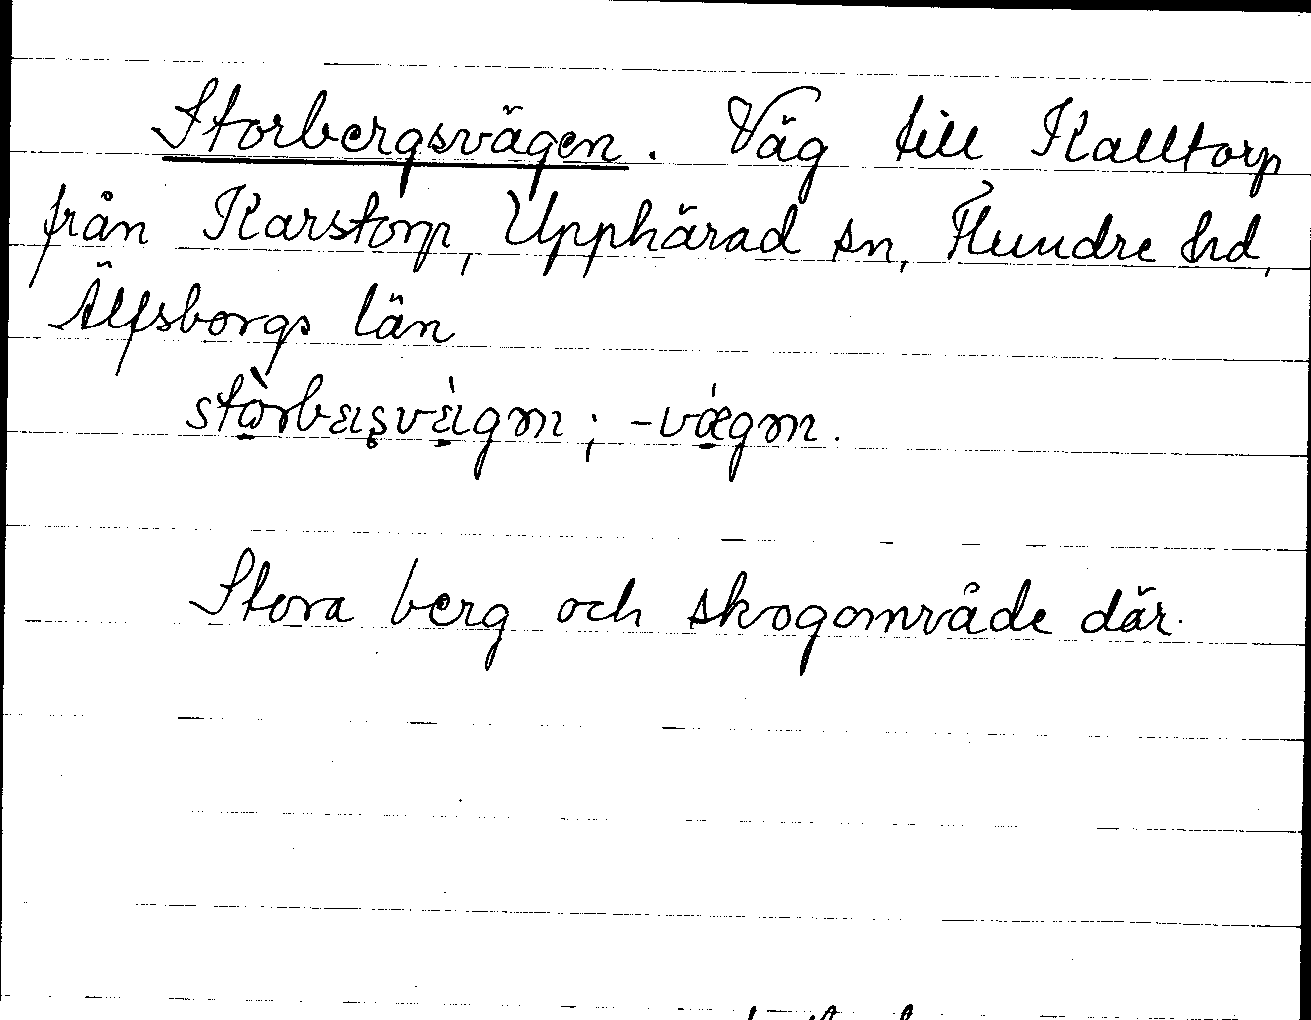 Storbergsvägen. Väg till Kalltorp
från Karstorp, Upphärad sn, Flundre hd,
Älfsborgs län
Stora berg och skogområde där.